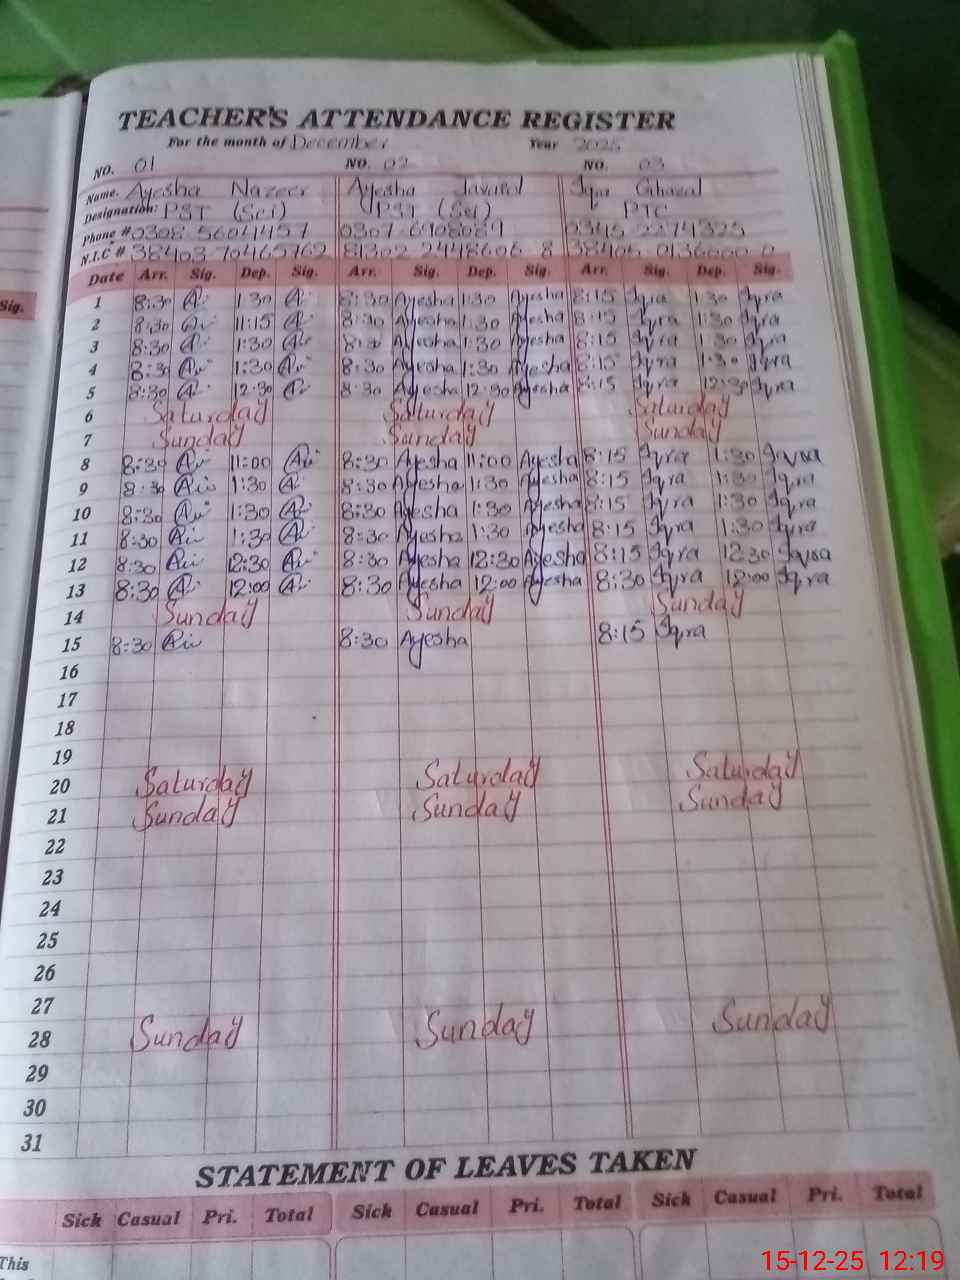 TEACHER'S ATTENDANCE REGISTER
For the month of December Year 2025
NO. 01 NO. 02 NO. 03
Name. Ayesha Nazeer Ayesha Iqra Ghazal
Designation: PST (Sci) PST (Sci) PTC
Phone # 0308 5604457 0307 6908089 0345 2274325
N.I.C # 38403 70465762 81302 2448606 8 38405 0136000 0
Date Arr. Sig. Dep. Sig. Arr. Sig. Dep. Sig. Arr. Sig. Dep. Sig.
Sig.
1 8:30 1:30 8:30 Ayesha 1:30 Ayesha 8:15 Iqra 1:30 Iqra
2 8:30 11:15 8:30 Ayesha 1:30 Ayesha 8:15 Iqra 1:30 Iqra
3 8:30 1:30 8:30 Ayesha 1:30 Ayesha 8:15 Iqra 1:30 Iqra
4 8:30 1:30 8:30 Ayesha 1:30 Ayesha 8:15 Iqra 1:30 Iqra
5 8:30 12:30 8:30 Ayesha 12:30 Ayesha 8:15 Iqra 12:30 Iqra
6 Saturday Saturday Saturday
7 Sunday Sunday Sunday
8 8:30 11:00 8:30 Ayesha 11:00 Ayesha 8:15 Iqra 1:30 Iqra
9 8:30 1:30 8:30 Ayesha 1:30 Ayesha 8:15 Iqra 1:30 Iqra
10 8:30 1:30 8:30 Ayesha 1:30 Ayesha 8:15 Iqra 1:30 Iqra
11 8:30 1:30 8:30 Ayesha 1:30 Ayesha 8:15 Iqra 1:30 Iqra
12 8:30 12:30 8:30 Ayesha 12:30 Ayesha 8:15 Iqra 12:30 Iqra
13 8:30 12:00 8:30 Ayesha 12:00 Ayesha 8:30 Iqra 12:00 Iqra
14 Sunday Sunday Sunday
15 8:30 8:30 Ayesha 8:15 Iqra
16
17
18
19
20 Saturday Saturday Saturday
21 Sunday Sunday Sunday
22
23
24
25
26
27
28 Sunday Sunday Sunday
29
30
31
STATEMENT OF LEAVES TAKEN
Sick Casual Pri. Total Sick Casual Pri. Total Sick Casual Pri. Total
This
15-12-25 12:19